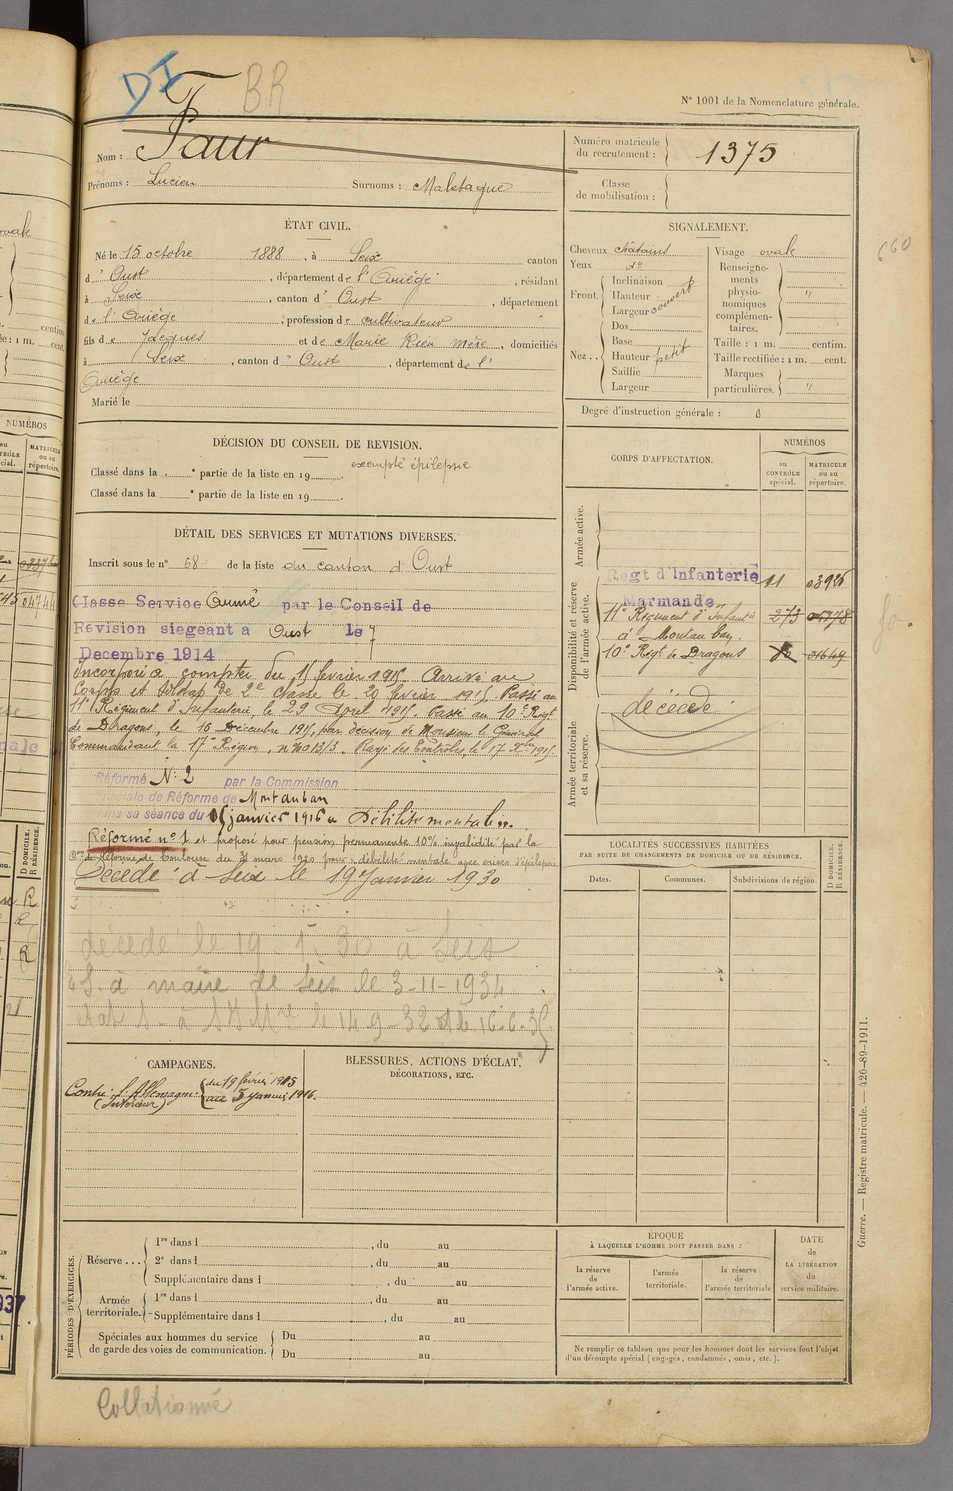 DI
BR
N° 1001 de la Nomenclature générale.
Nom : Faur
Prénoms : Lucien Surnoms : Malstague
Numéro matricule du recrutement : 1375
Classe de mobilisation :
ÉTAT CIVIL.
Né le 15 octobre 1888, à Seix canton
d' Oust, département de l'Ariège, résidant
à Seix, canton d' Oust, département
de l'Ariège, profession de cultivateur
fils de Jacques et de Marie Rieu mère, domiciliés
à Seix, canton d' Oust, département de l'
Ariège
Marié le
SIGNALEMENT.
Cheveux châtains
Yeux d°
Front. Inclinaison
Hauteur
Largeur couvert
Nez .. Dos
Base
Hauteur petit
Saillie
Largeur
Visage ovale
Renseignements physionomiques complémentaires : "
Taille : 1 m. centim.
Taille rectifiée : 1 m. cent.
Marques particulières. "
Degré d'instruction générale : 0
DÉCISION DU CONSEIL DE REVISION.
Classé dans la ° partie de la liste en 19 . exempté épilepsie
Classé dans la ° partie de la liste en 19 .
DÉTAIL DES SERVICES ET MUTATIONS DIVERSES.
Inscrit sous le n° 68 de la liste du canton d' Oust
Classe Service Armé par le Conseil de
Revision siegeant a Oust le 7
Decembre 1914
Incorporé à compter du 15 février 1915. Arrivé au
Corps et soldat de 2e classe le 20 février 1915. Passé au
11e Régiment d'Infanterie, le 29 Avril 1915. Passé au 10e Regt
de Dragons, le 16 Décembre 1915, par décision de Monsieur le Général
Commandant la 17e Région, Rayé des Contrôles, le 17 Xbre 1915.
Réformé N° 2 par la Commission
de Réforme de Montauban
dans sa séance du janvier 1916 Débilité mentale.
Réformé n° 1 et proposé pour pension permanente 10% invalidité par la
Con de Réforme de Toulouse du 31 mars 1920 pour : débilité mentale avec crises d'épilepsie
Décédé à Seix le 19 Janvier 1930
décédé le 19. 1. 30 à Seix
à maire de Seix le 3-11-1934
le 14-9-32 16-6-35
CORPS D'AFFECTATION.
NUMÉROS
au CONTRÔLE spécial.
MATRICULE ou au répertoire.
Armée active.
Disponibilité et réserve de l'armée active.
Regt d'Infanterie 11
Marmande
11e Régiment d'Infanterie 273
à Montauban.
10e Regt de Dragons
décédé
Armée territoriale et sa réserve.
LOCALITÉS SUCCESSIVES HABITÉES
PAR SUITE DE CHANGEMENTS DE DOMICILE OU DE RÉSIDENCE.
Dates. Communes. Subdivisions de région. D DOMICILE. R RÉSIDENCE.
CAMPAGNES.
Contre l'Allemagne (Intérieur) du 19 février 1915
au janvier 1916.
BLESSURES, ACTIONS D'ÉCLAT,
DÉCORATIONS, ETC.
PÉRIODES D'EXERCICES.
Réserve ... 1re dans l , du au
2e dans l , du au
Supplémentaire dans l , du au
Armée territoriale. 1re dans l , du au
Supplémentaire dans l , du au
Spéciales aux hommes du service de garde des voies de communication. Du au
Du au
ÉPOQUE
À LAQUELLE L'HOMME DOIT PASSER DANS :
la réserve de l'armée active.
l'armée territoriale.
la réserve de l'armée territoriale
DATE de LA LIBÉRATION du service militaire.
Ne remplir ce tableau que pour les hommes dont les services font l'objet
d'un décompte spécial (engagés, condamnés, omis, etc.).
Guerre. — Registre matricule. — 426-89-1911.
660
Collationné